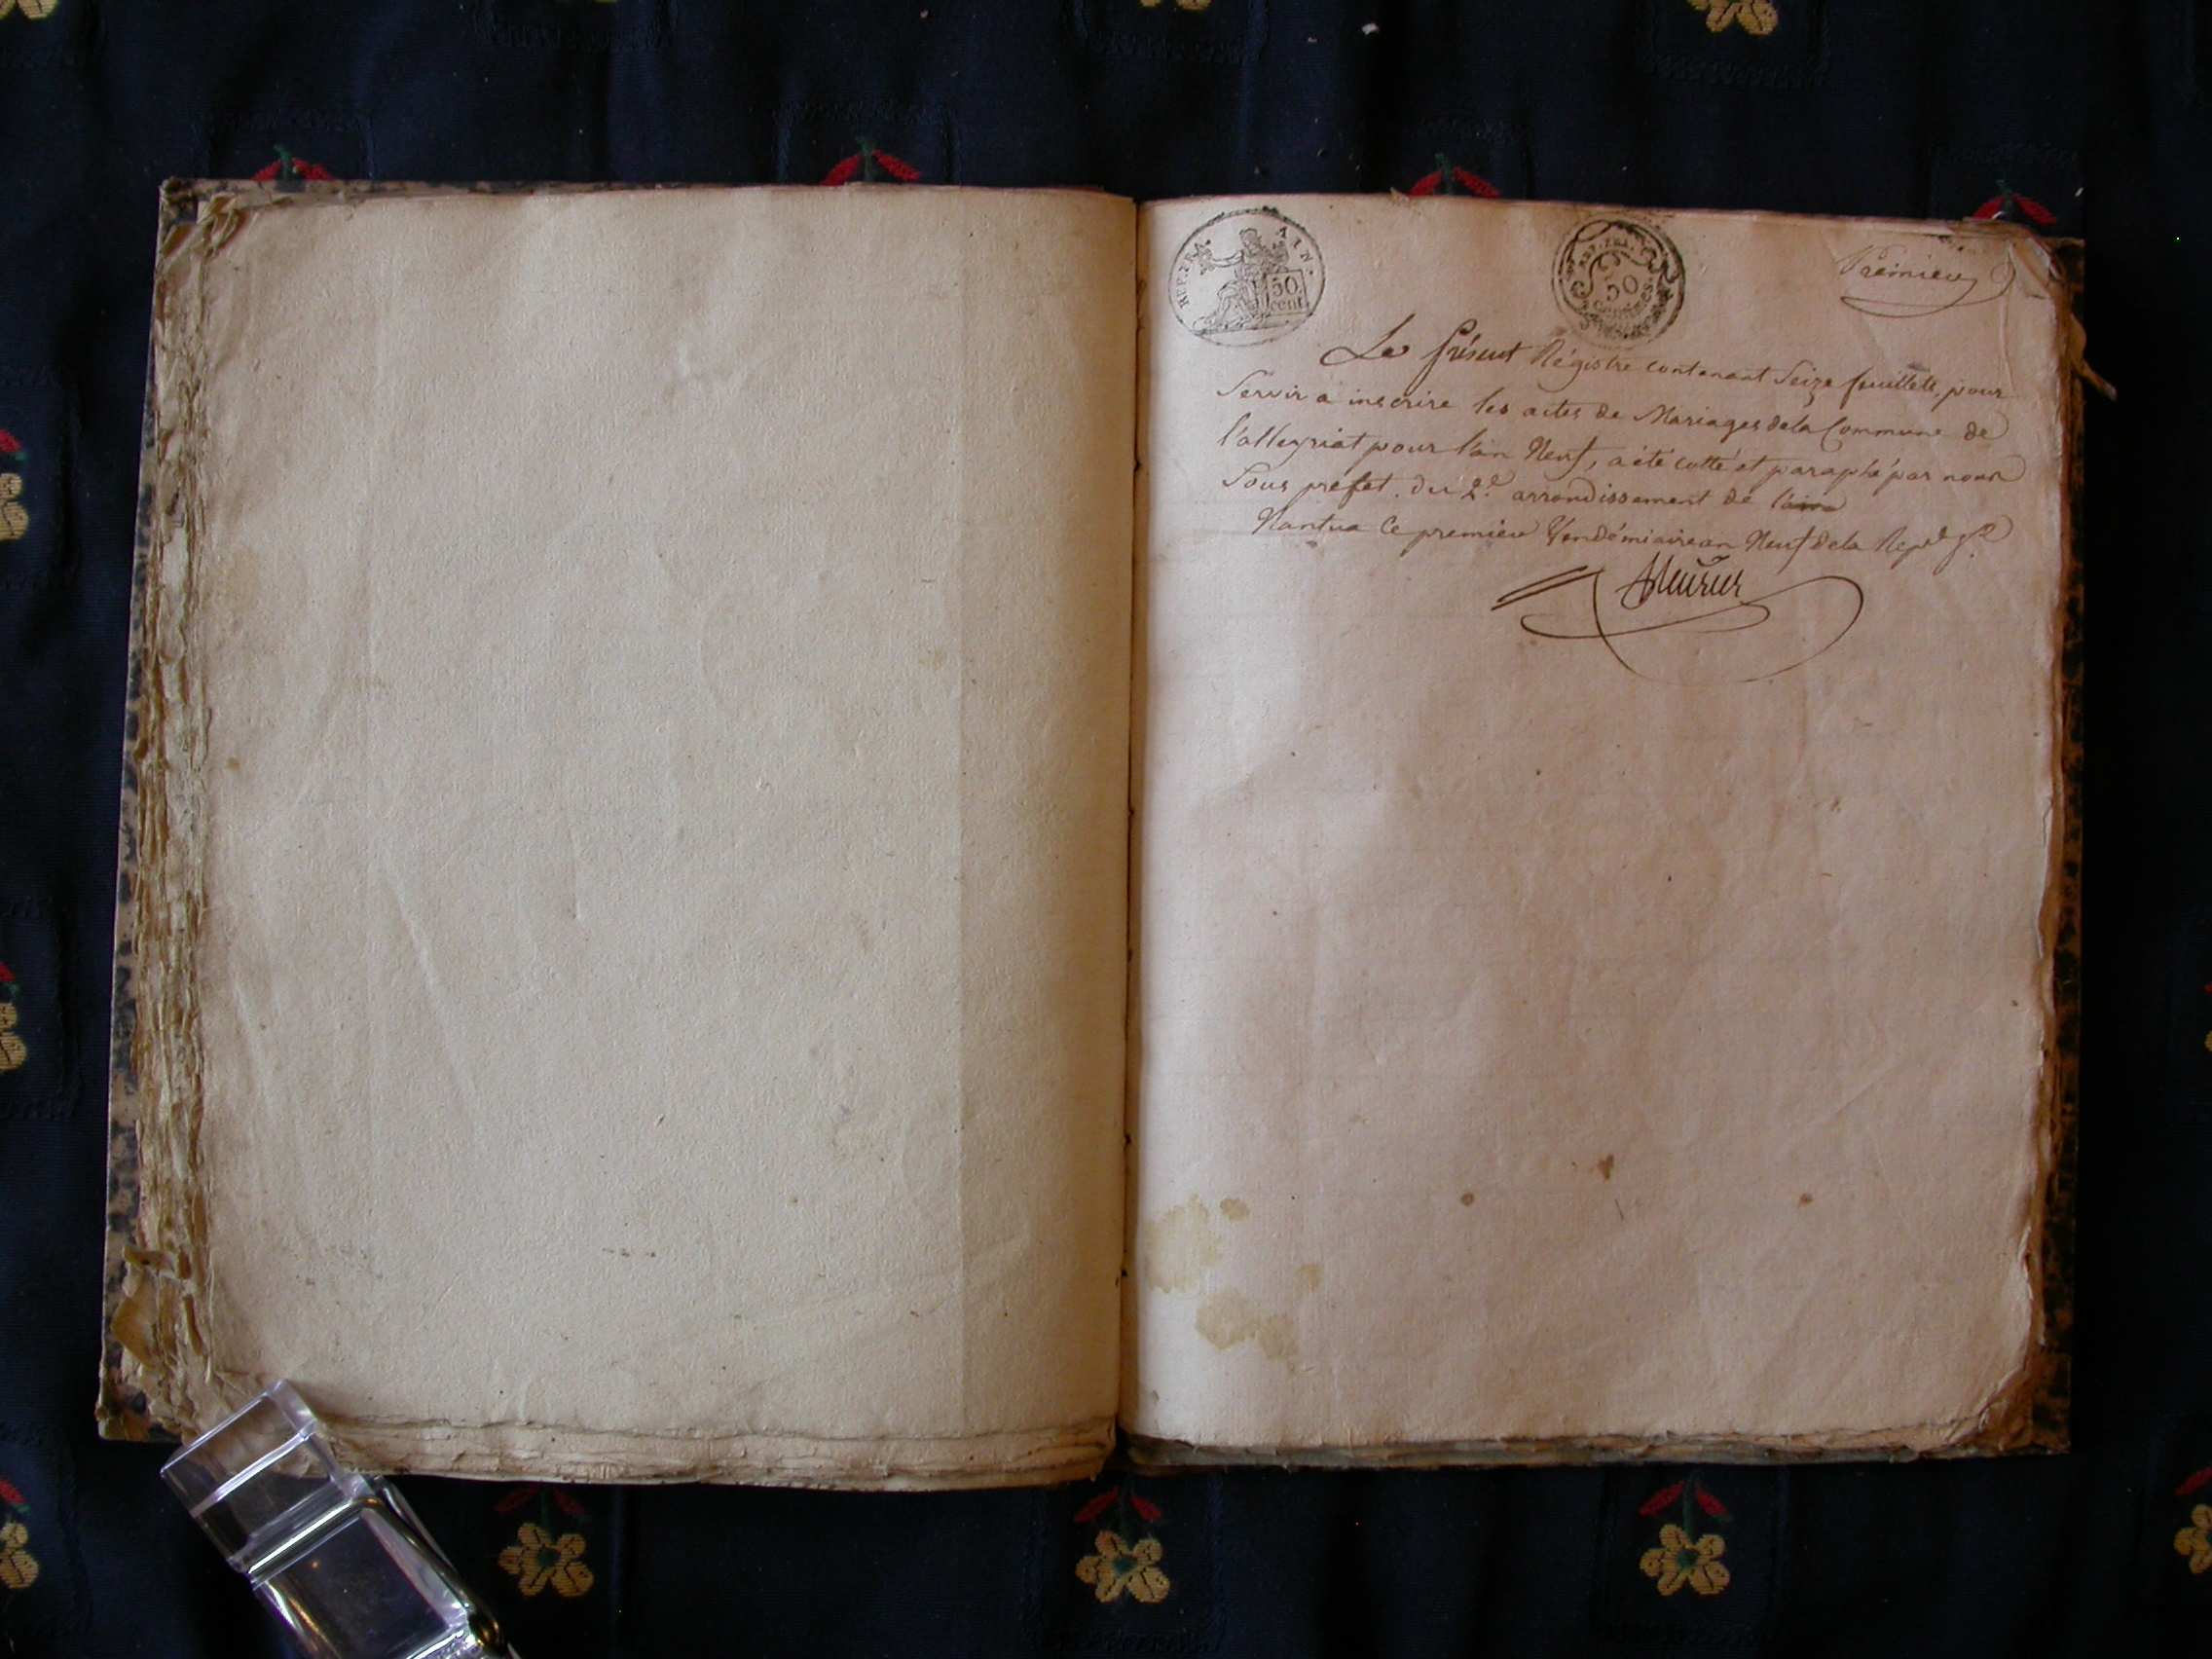 REP. FRA. AIN.
50 cent.
REP. FRA.
50
Centimes.
Premier
Le présent Régistre contenant Seize feuillets, pour
Servir a inscrire les actes de Mariages dela Commune de
l'allegriat pour l'an Neuf, a été cotté et paraphé par nous
Sous préfet. du 2e. arrondissement de l'ain
Nantua le premier Vendémiaire an Neuf dela Repub